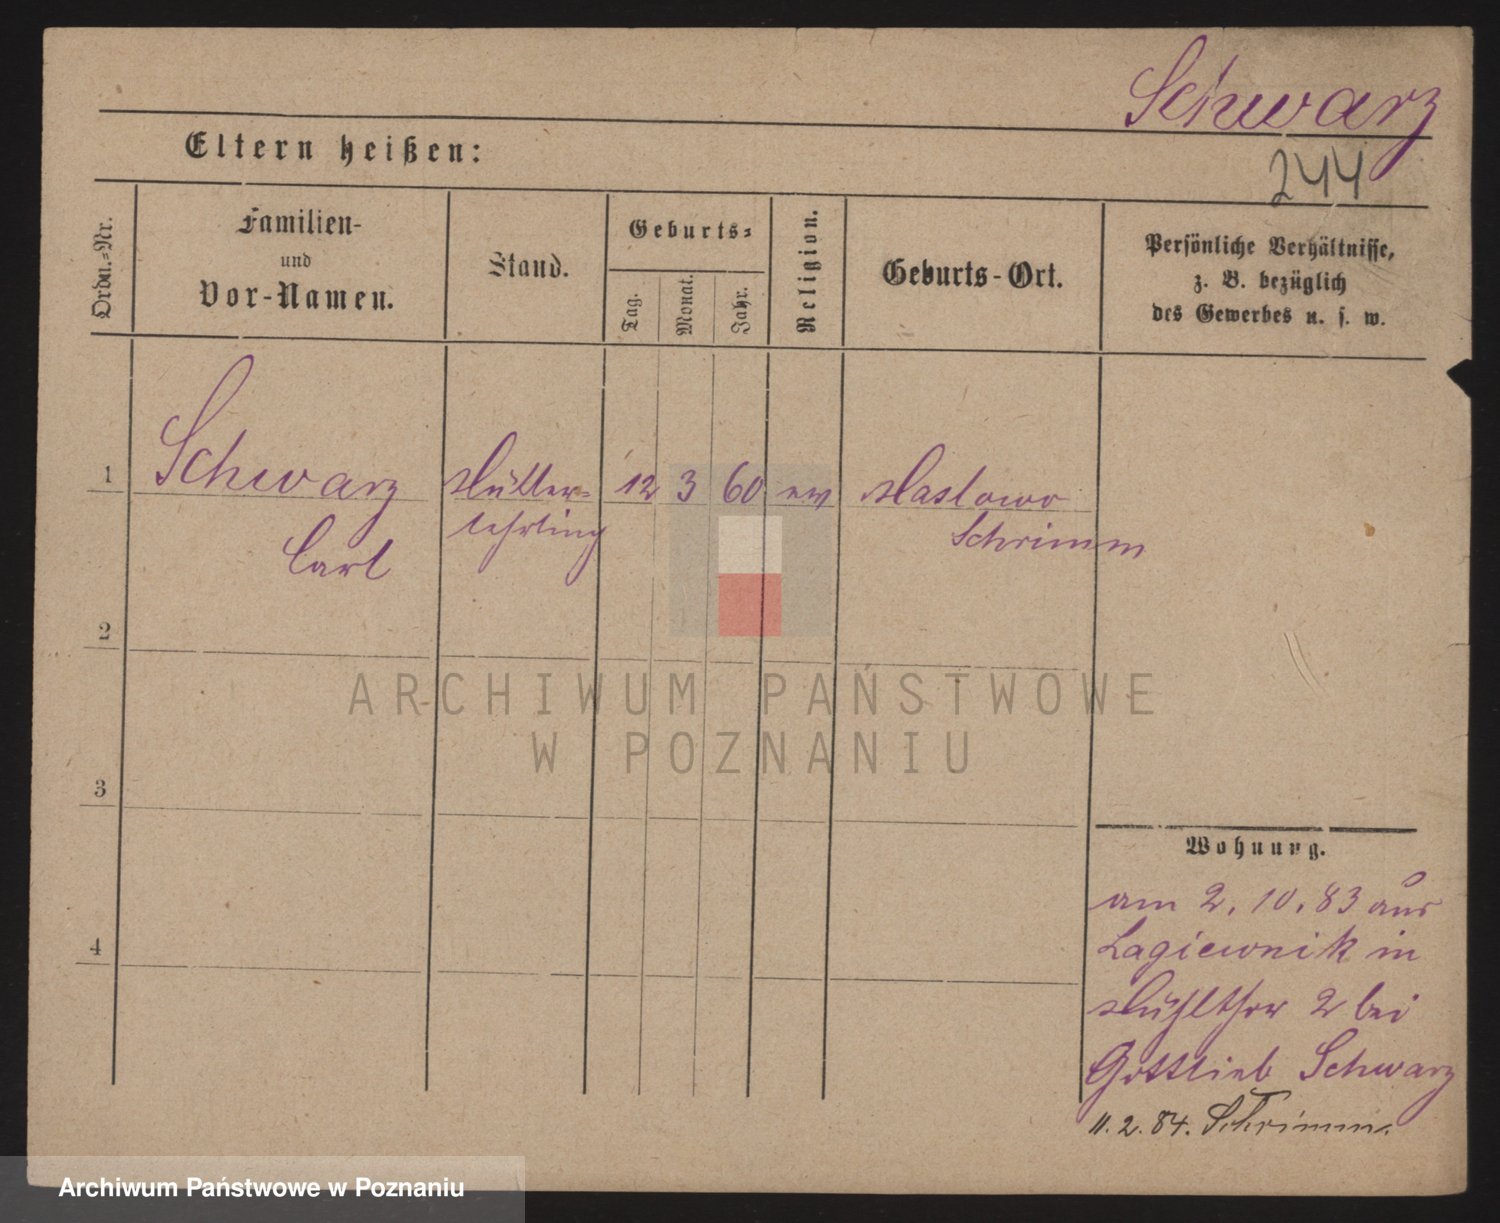 Schwarz
244
Eltern heißen:
Ordn.-Nr.
Familien-
und
Vor-Namen.
Stand.
Geburts-
Tag.
Monat.
Jahr.
Religion.
Geburts-Ort.
Persönliche Verhältnisse,
z. B. bezüglich
des Gewerbes u. s. w.
1 Schwarz Müller- 12 3 60 ev Maslowo
Carl lehrling Schrimm
2
3
4
Wohnung.
am 2. 10. 83 aus
Lagiewnik in
Mühlthor 2 bei
Gottlieb Schwarz
11. 2. 84. Schrimm.
ARCHIWUM PAŃSTWOWE
W POZNANIU
Archiwum Państwowe w Poznaniu